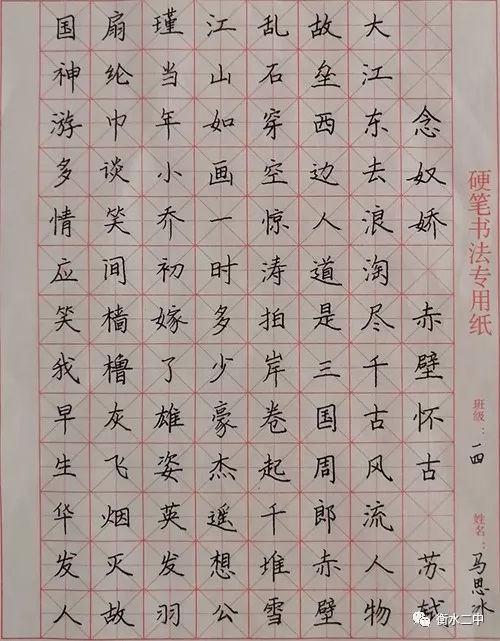 硬笔书法专用纸
班级：一四 姓名：马思冰
念奴娇 赤壁怀古 苏轼
大江东去浪淘尽千古风流人物
故垒西边人道是三国周郎赤壁
乱石穿空惊涛拍岸卷起千堆雪
江山如画一时多少豪杰遥想公
瑾当年小乔初嫁了雄姿英发羽
扇纶巾谈笑间樯橹灰飞烟灭故
国神游多情应笑我早生华发人
衡水二中